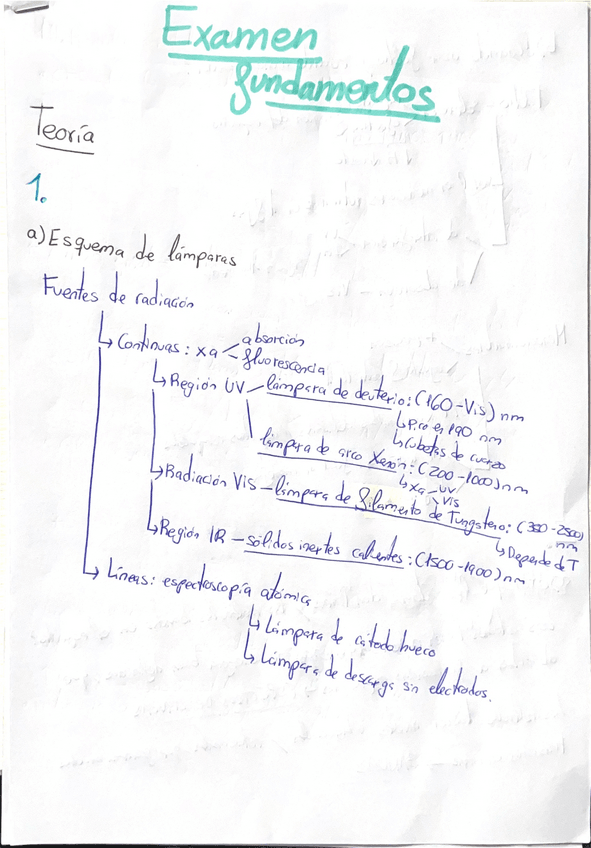 Examen
fundamentos
Teoría
1.
a) Esquema de lámparas
Fuentes de radiación
↳ Continuas: xa absorción
fluorescencia
↳ Región UV – lámpara de deuterio: (160-Vis) nm
↳ Pico en 190 nm
↳ Cubetas de cuarzo
lámpara de arco Xenón: (200-1000) nm
↳ xa UV
Vis
↳ Radiación Vis – lámpara de filamento de Tungsteno: (350-2500) nm
↳ Depende de T
↳ Región IR – sólidos inertes calientes: (1500-1900) nm
↳ Líneas: espectroscopía atómica
↳ Lámpara de cátodo hueco
↳ Lámpara de descarga sin electrodos.